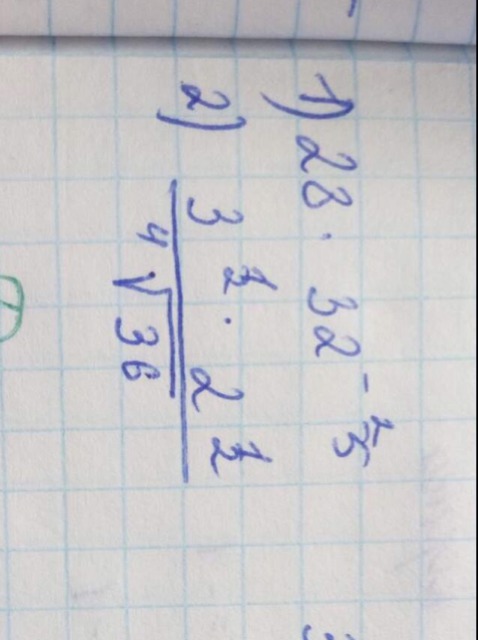 1) 28 · 32^(-2/5)
2) (3^1 · 2^1) / ⁴√36